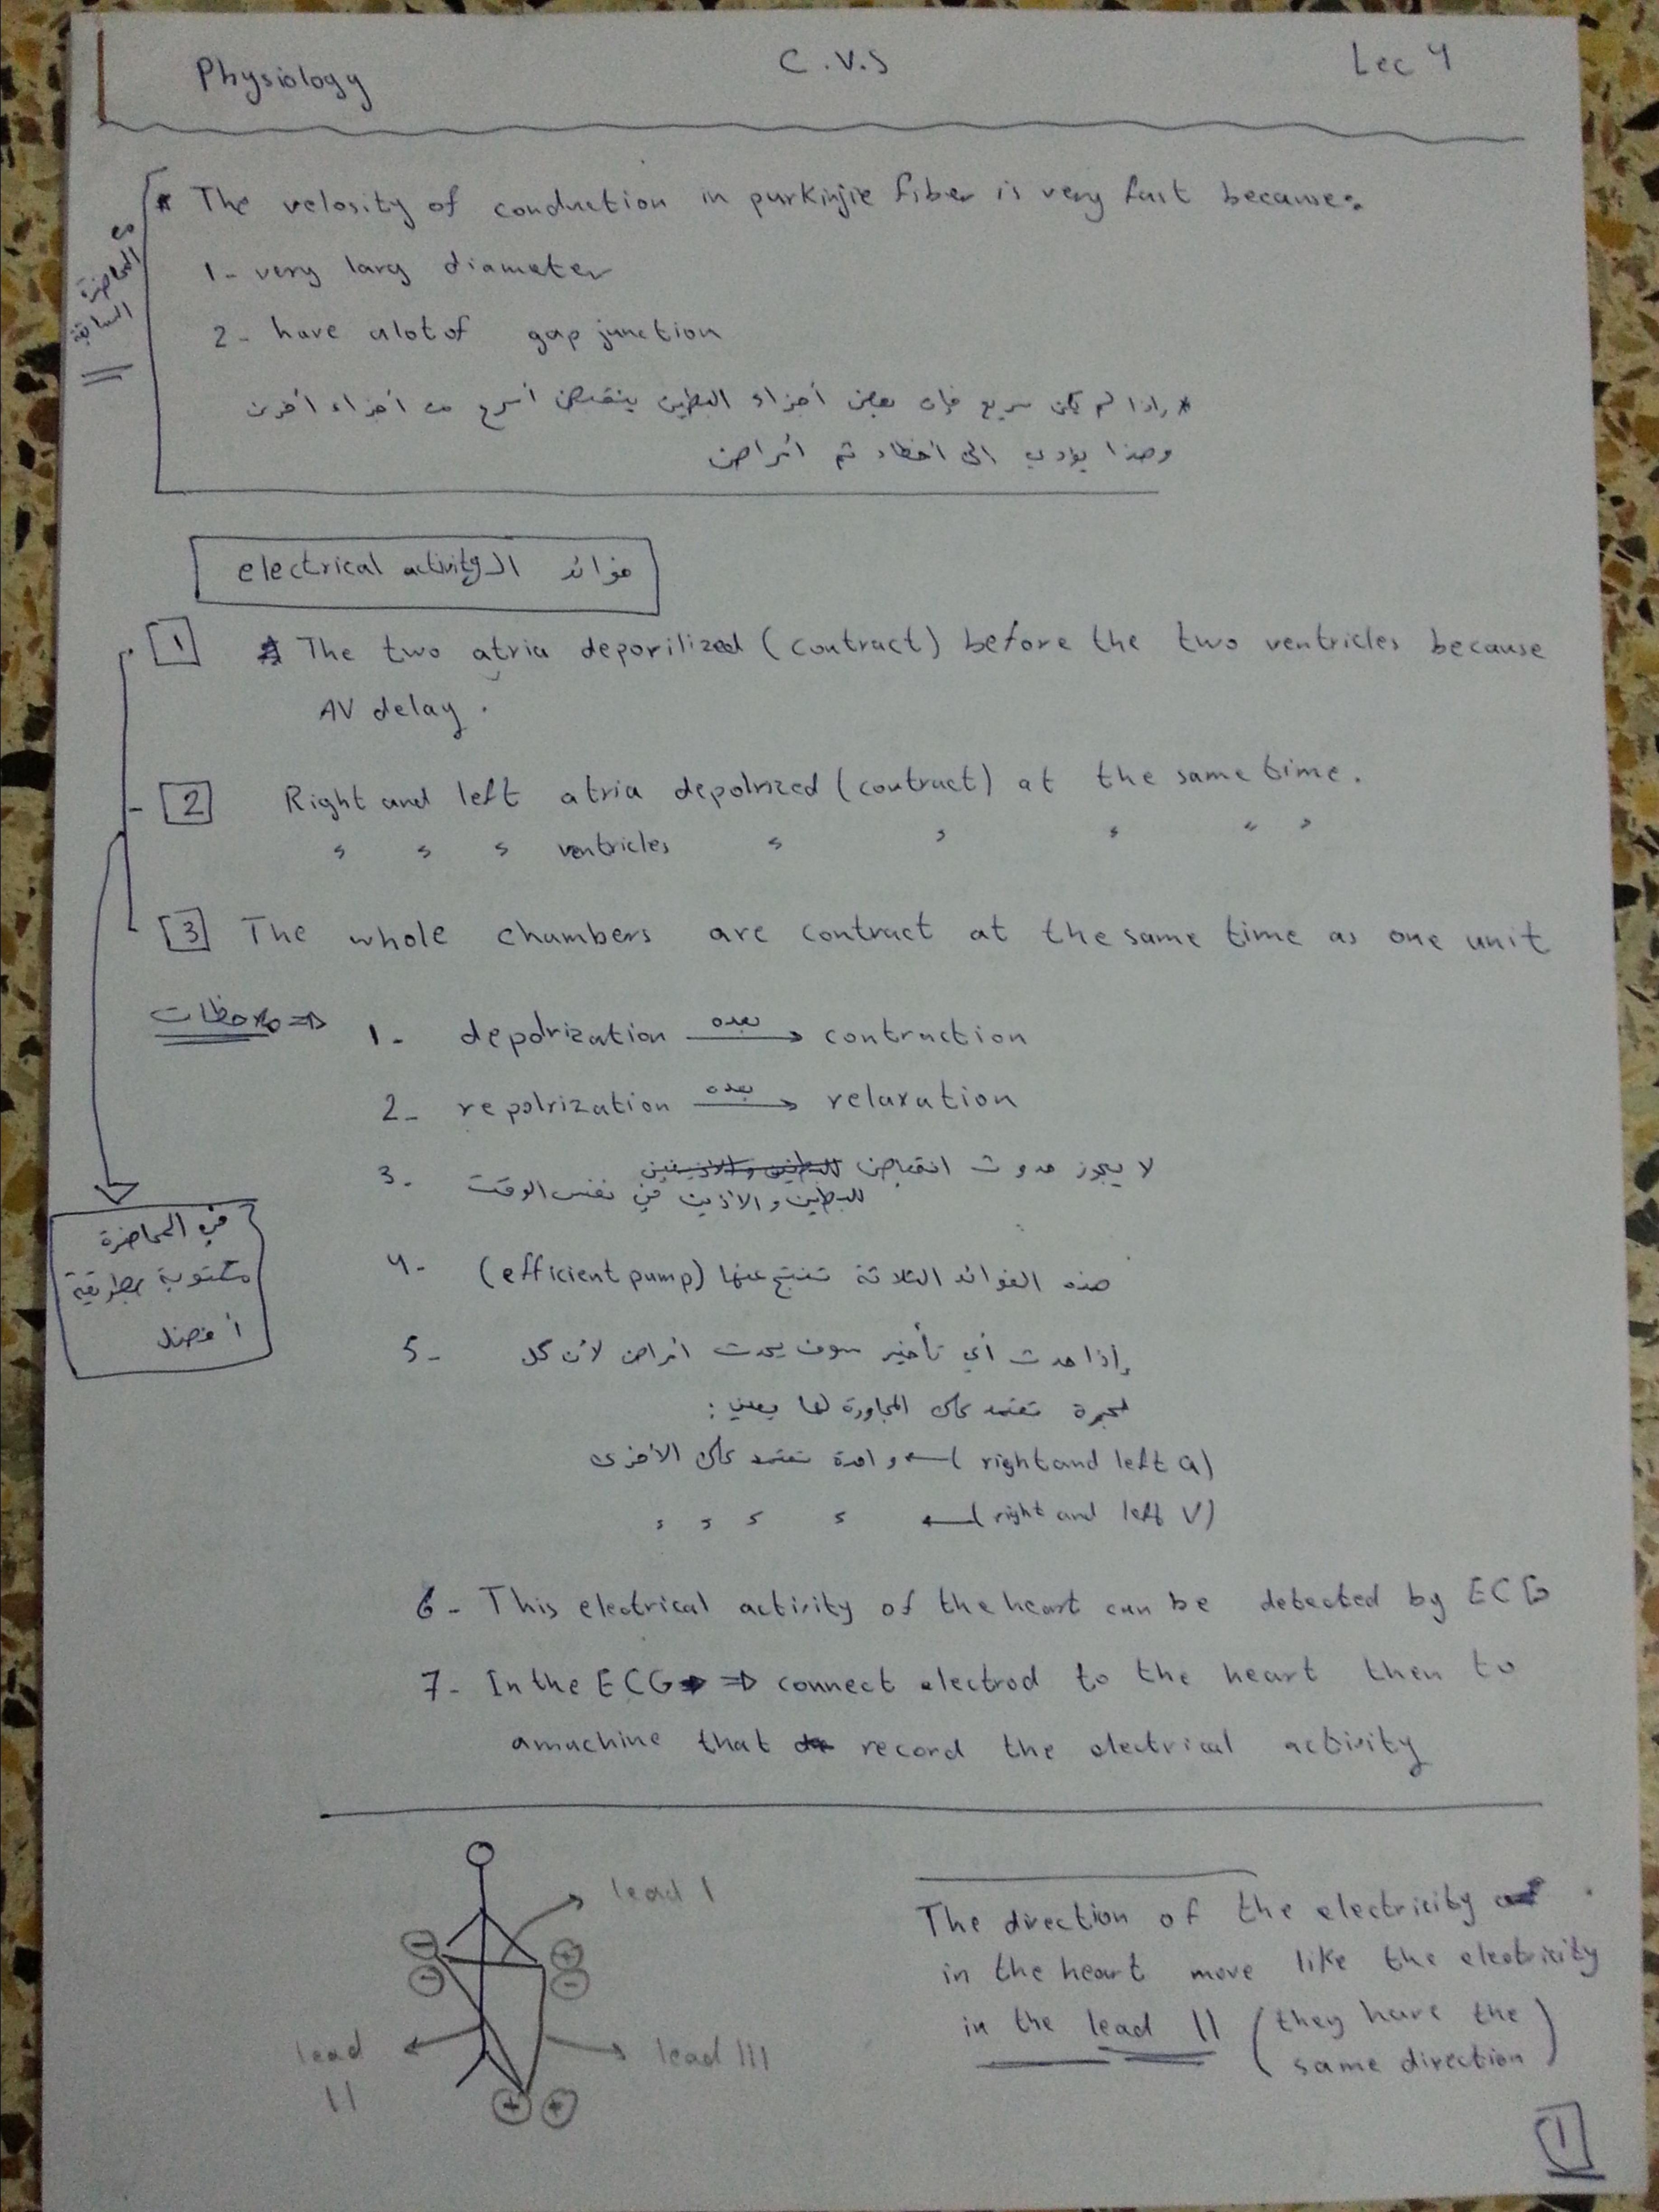 Physiology
C.V.S
Lec 4
المحاضرة
السابقة
* The velosity of conduction in purkinjie fiber is very fast because:
1- very larg diameter
2- have alot of gap junction
* وإذا لم يكن سريع فإن بعض أجزاء البطين ينقبض أسرع من أجزاء أخرى
وهذا يؤدي الى أخطاء ثم امراض
فوائد الـ electrical activity
1 The two atria deporilized (contract) before the two ventricles because
AV delay.
2 Right and left atria depolrized (contract) at the same time.
" " " ventricles " " " " "
3 The whole chambers are contract at the same time as one unit
ملاحظات ⇒ 1- depolrization بعده → contraction
2- repolrization بعده → relaxation
3- لا يجوز حدوث انقباض
للبطين والأذين في نفس الوقت
4- هذه الفوائد الثلاثة تنتج عنها (efficient pump)
في المحاضرة
مكتوبة بطريقة
أفضل
5- إذا حدث أي تأخير سوف يحدث امراض لأن كل
حجرة تعتمد على المجاورة لها يعني:
(right and left a) ← واحدة تعتمد على الأخرى
(right and left V) ← " " " "
6- This electrical activity of the heart can be detected by ECG
7- In the ECG ⇒ connect electrod to the heart then to
amachine that record the electrical activity
lead I
lead
II
lead III
The direction of the electricity
in the heart move like the electricity
in the lead II (they have the
same direction)
1